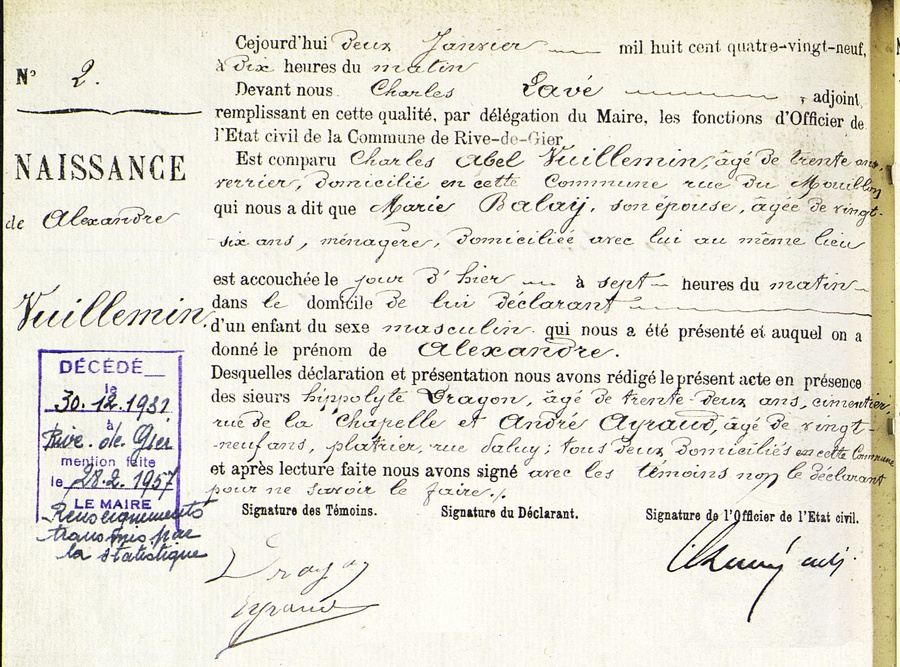 N° 2.
NAISSANCE
de Alexandre
Vuillemin.
DÉCÉDÉ
le
30.12.1931
à
Rive. de. Gier
mention faite
le 28.2.1957
LE MAIRE
Renseignements
transmis par
la statistique
Cejourd'hui deux Janvier mil huit cent quatre-vingt-neuf,
à dix heures du matin
Devant nous Charles Lavé, adjoint,
remplissant en cette qualité, par délégation du Maire, les fonctions d'Officier de
l'Etat civil de la Commune de Rive-de-Gier
Est comparu Charles Abel Vuillemin, âgé de trente ans,
verrier, domicilié en cette Commune rue du Mouillon
qui nous a dit que Marie Balay, son épouse, âgée de vingt-
six ans, ménagère, domiciliée avec lui au même lieu
est accouchée le jour d'hier à sept heures du matin
dans le domicile de lui déclarant
d'un enfant du sexe masculin qui nous a été présenté et auquel on a
donné le prénom de Alexandre.
Desquelles déclaration et présentation nous avons rédigé le présent acte en présence
des sieurs hippolyte Dragon, âgé de trente-deux ans, cimentier
rue de la Chapelle et André Ayraud, âgé de vingt-
-neuf ans, platrier, rue ; tous deux domiciliés en cette Commune
et après lecture faite nous avons signé avec les témoins non le déclarant
pour ne savoir le faire./.
Signature des Témoins. Signature du Déclarant. Signature de l'Officier de l'Etat civil.
Dragon adj
Eyraud